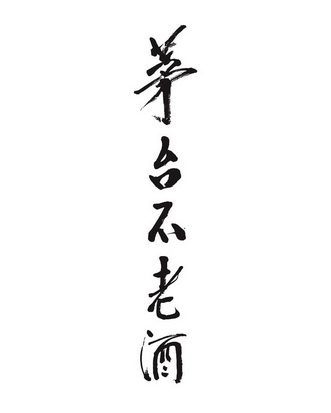 茅台不老酒